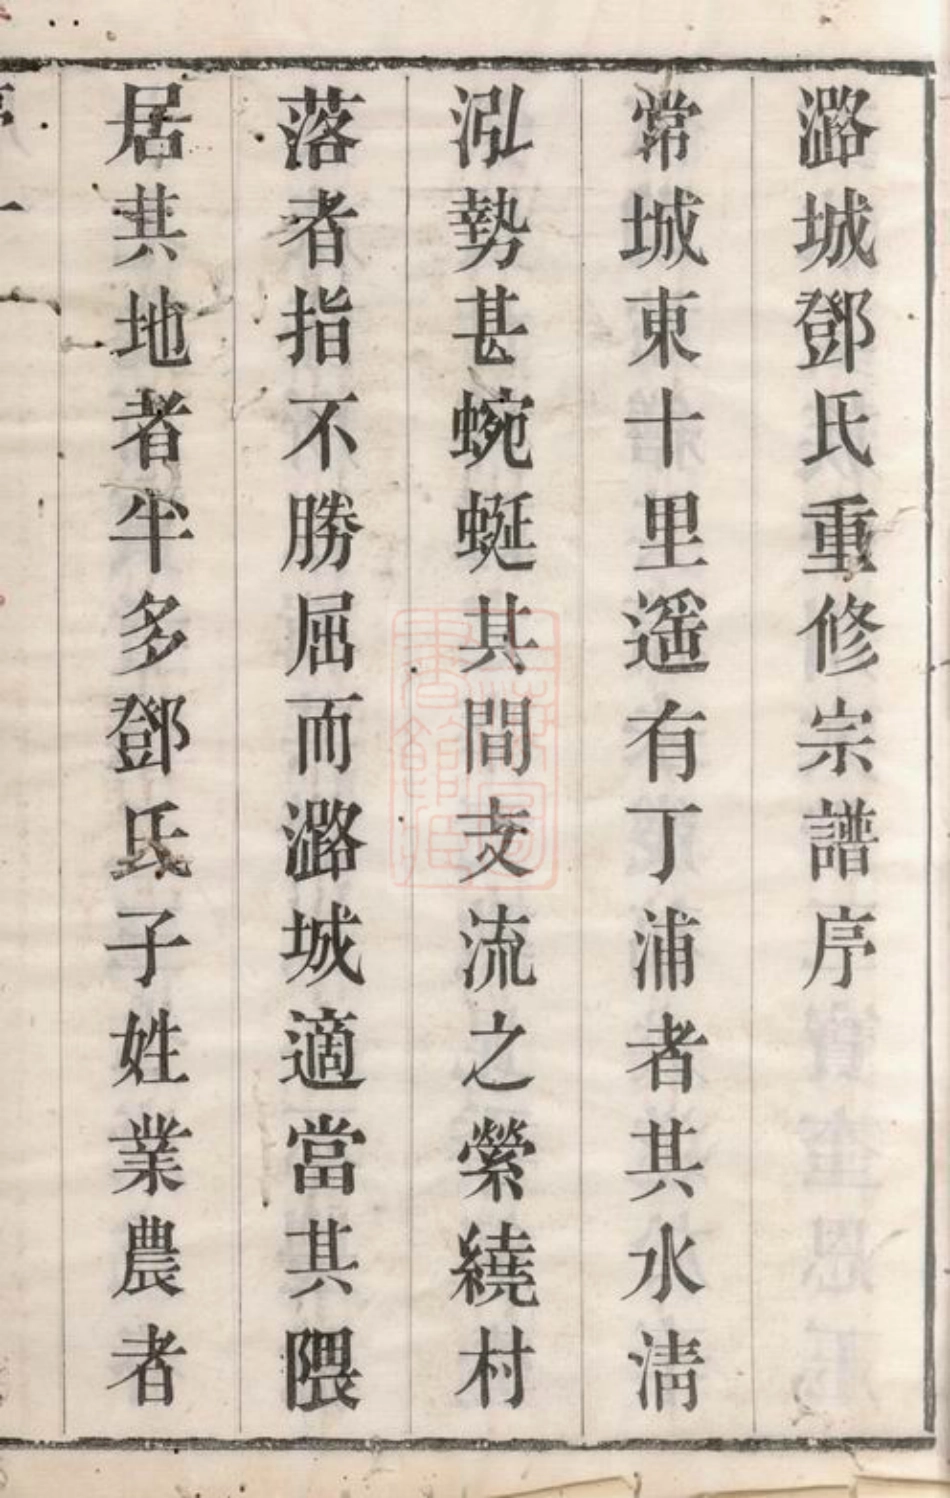 潞城鄧氏重修宗譜序
常城東十里遥有丁浦者其水清
泓勢甚蜿蜒其間支流之縈繞村
落者指不勝屈而潞城適當其隈
居其地者半多鄧氏子姓業農者